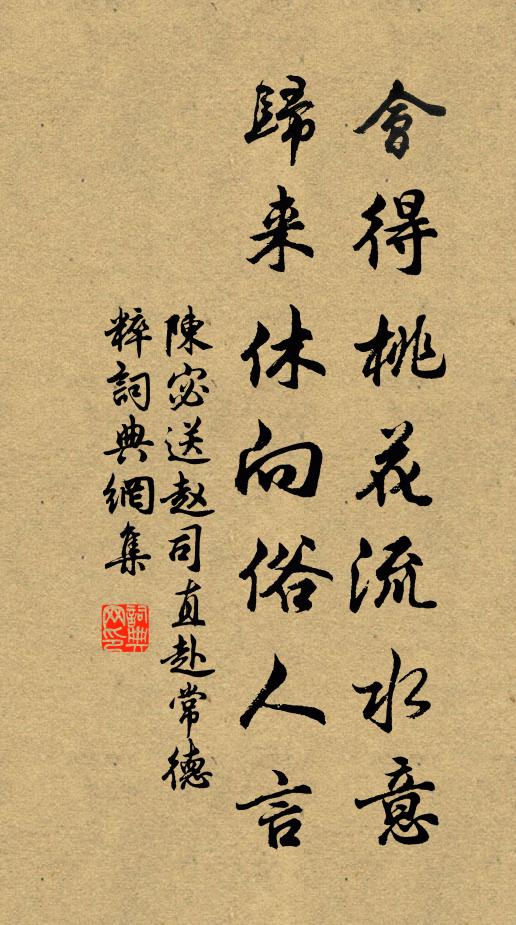 會得桃花流水意
歸来休向俗人言
陳宓送赵司直赴常德
粹詞典網集
詞典网印